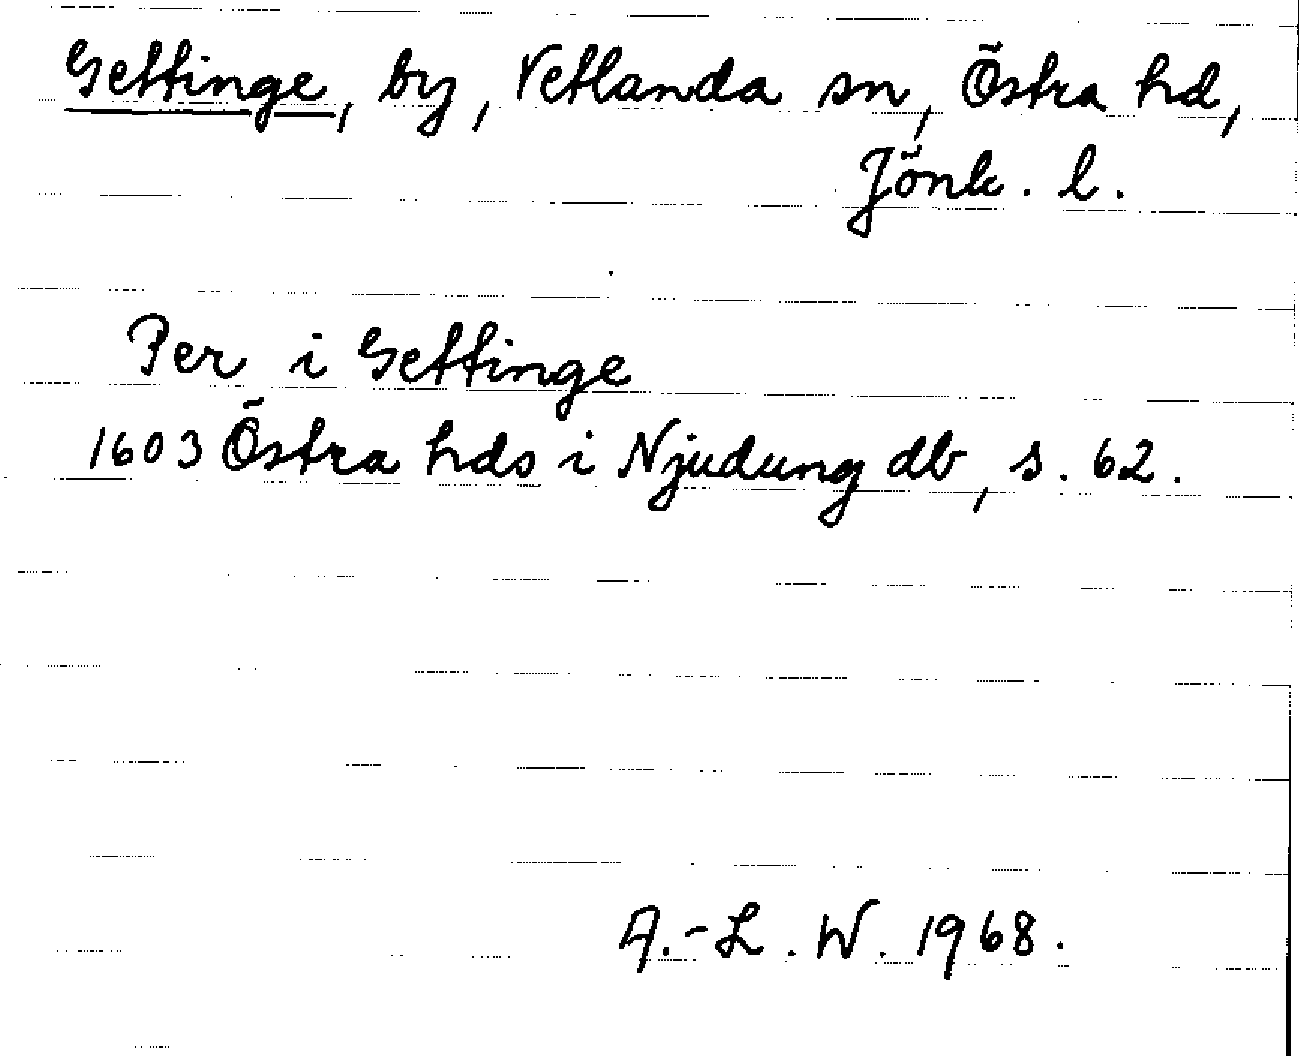 Gettinge, by, Vetlanda sn, Östra hd,
Jönk. l.
Per i Gettinge
1603 Östra hds i Njudung db, s. 62.
A.-L. W. 1968.